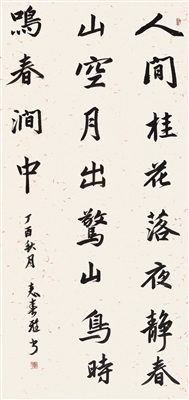 人間桂花落夜静春
山空月出驚山鳥時
鳴春澗中
丁酉秋月